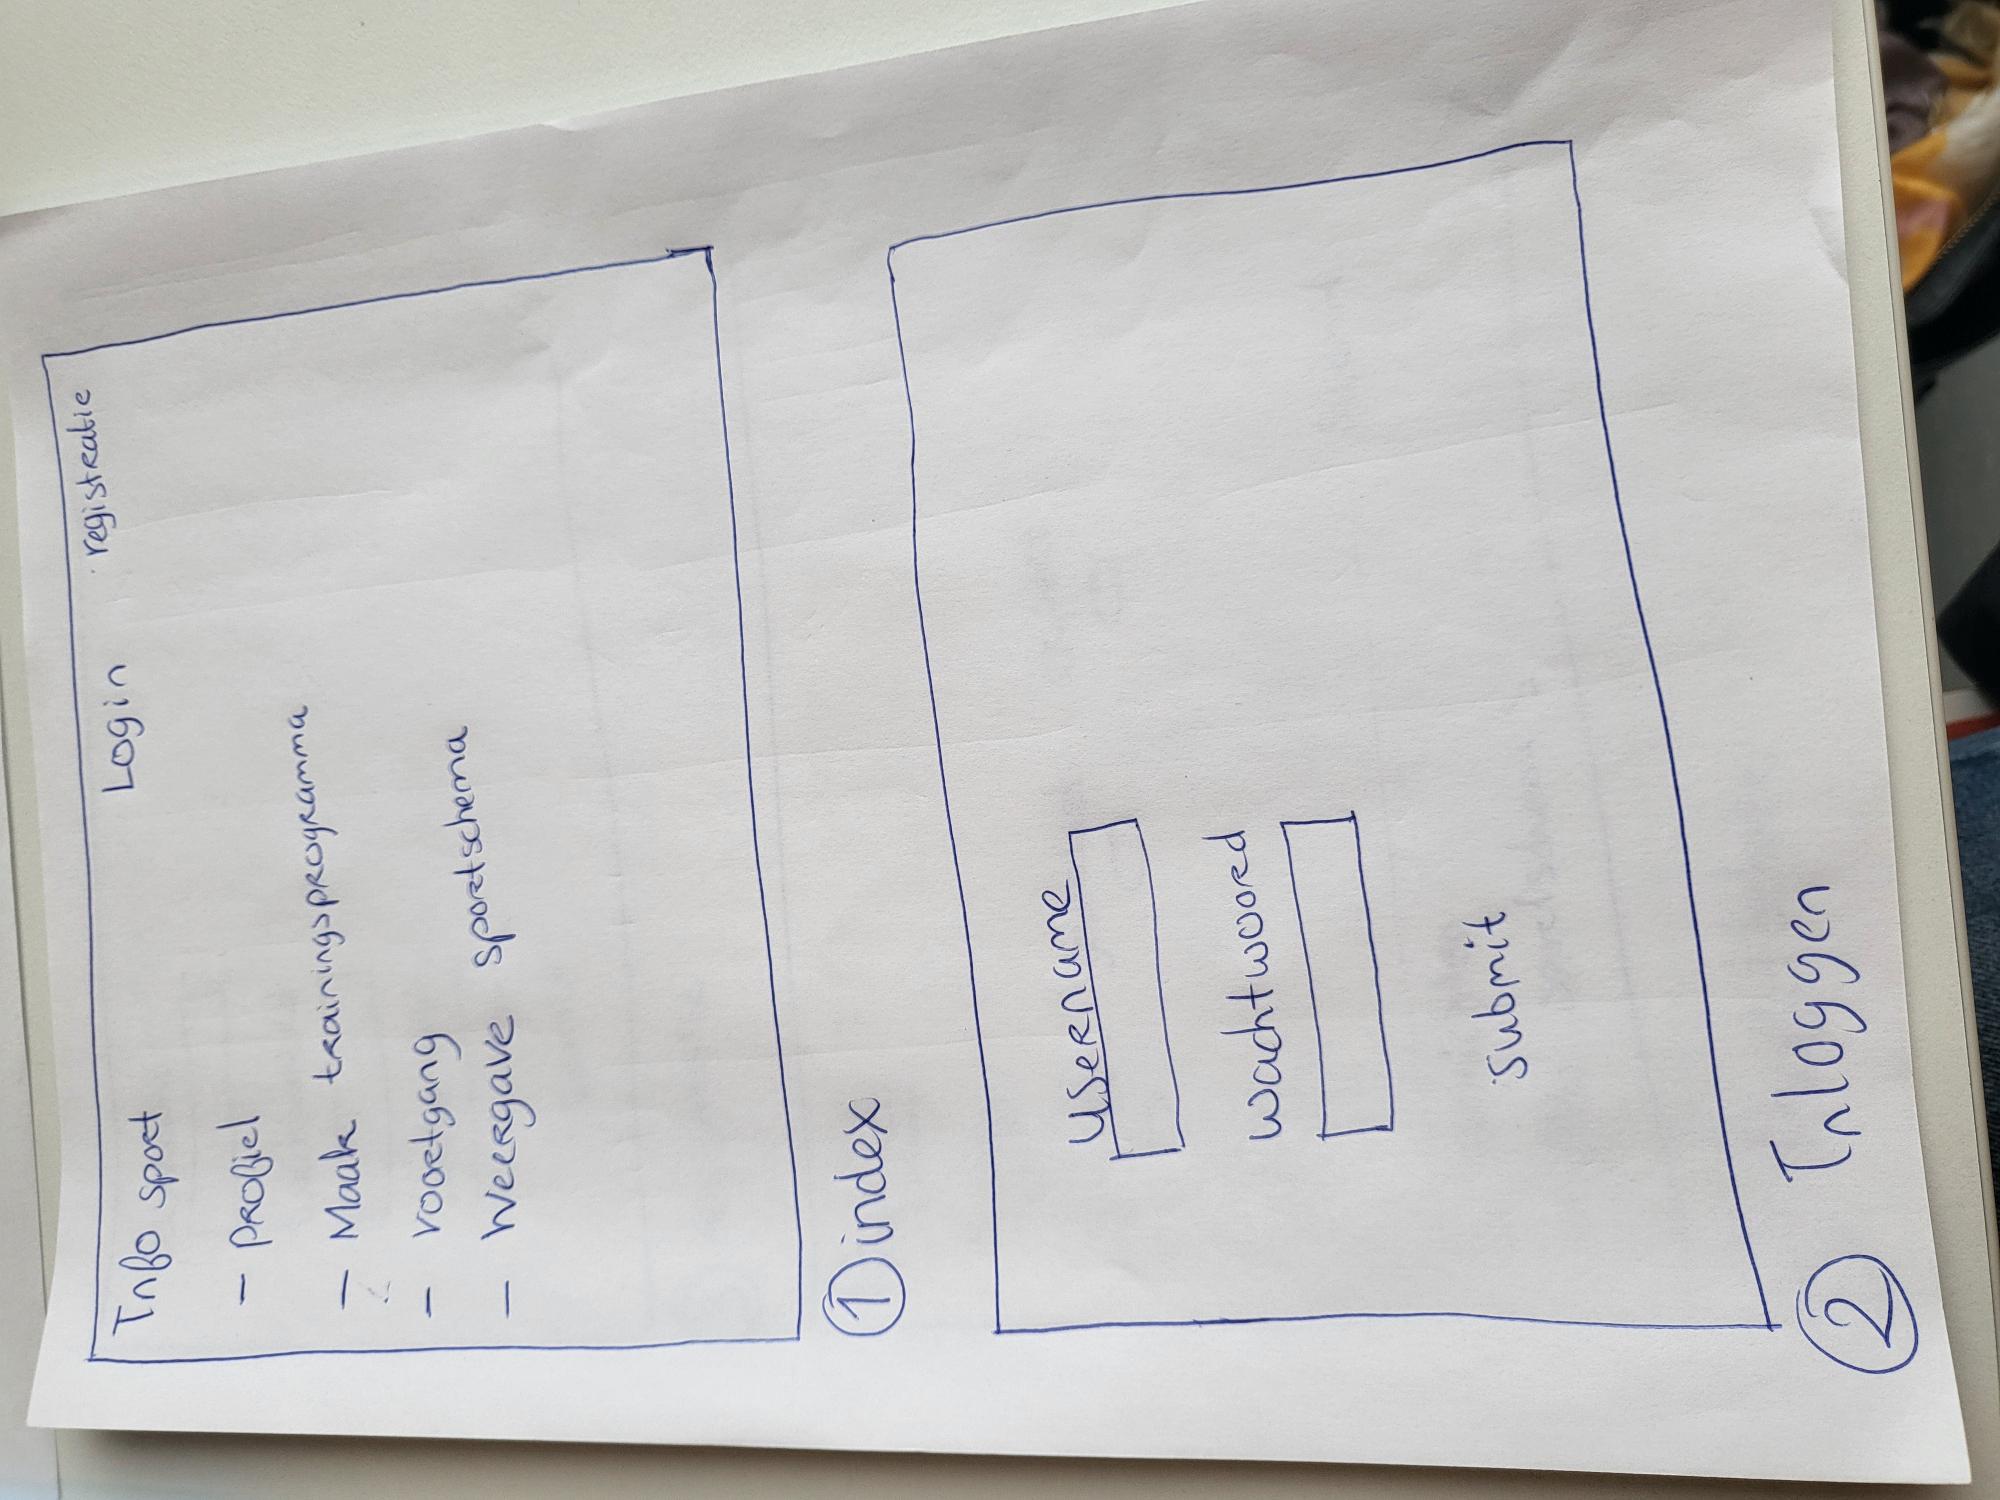 Info sport Login registratie
- Profiel
- Maak trainingsprogramma
- voortgang
- Weergave sportschema
1 index
Username
Wachtwoord
submit
2 Inloggen